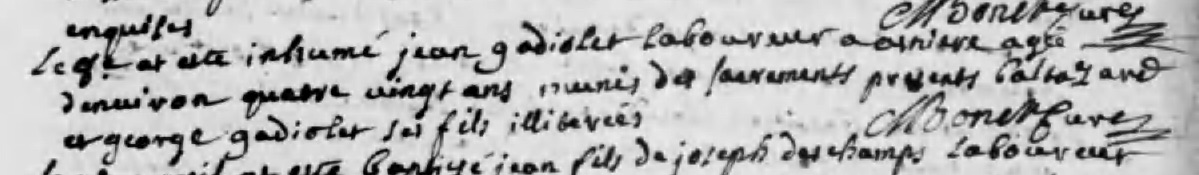 enquises MDonet Curé
Le ete inhumé jean gadiolet laboureur a agé
denuiron quatre vingt ans munis des sacrements presents baltazard
et george gadiolet ses fils illiterées MDonet Curé
baptisé jean fils de joseph deschamps laboureur